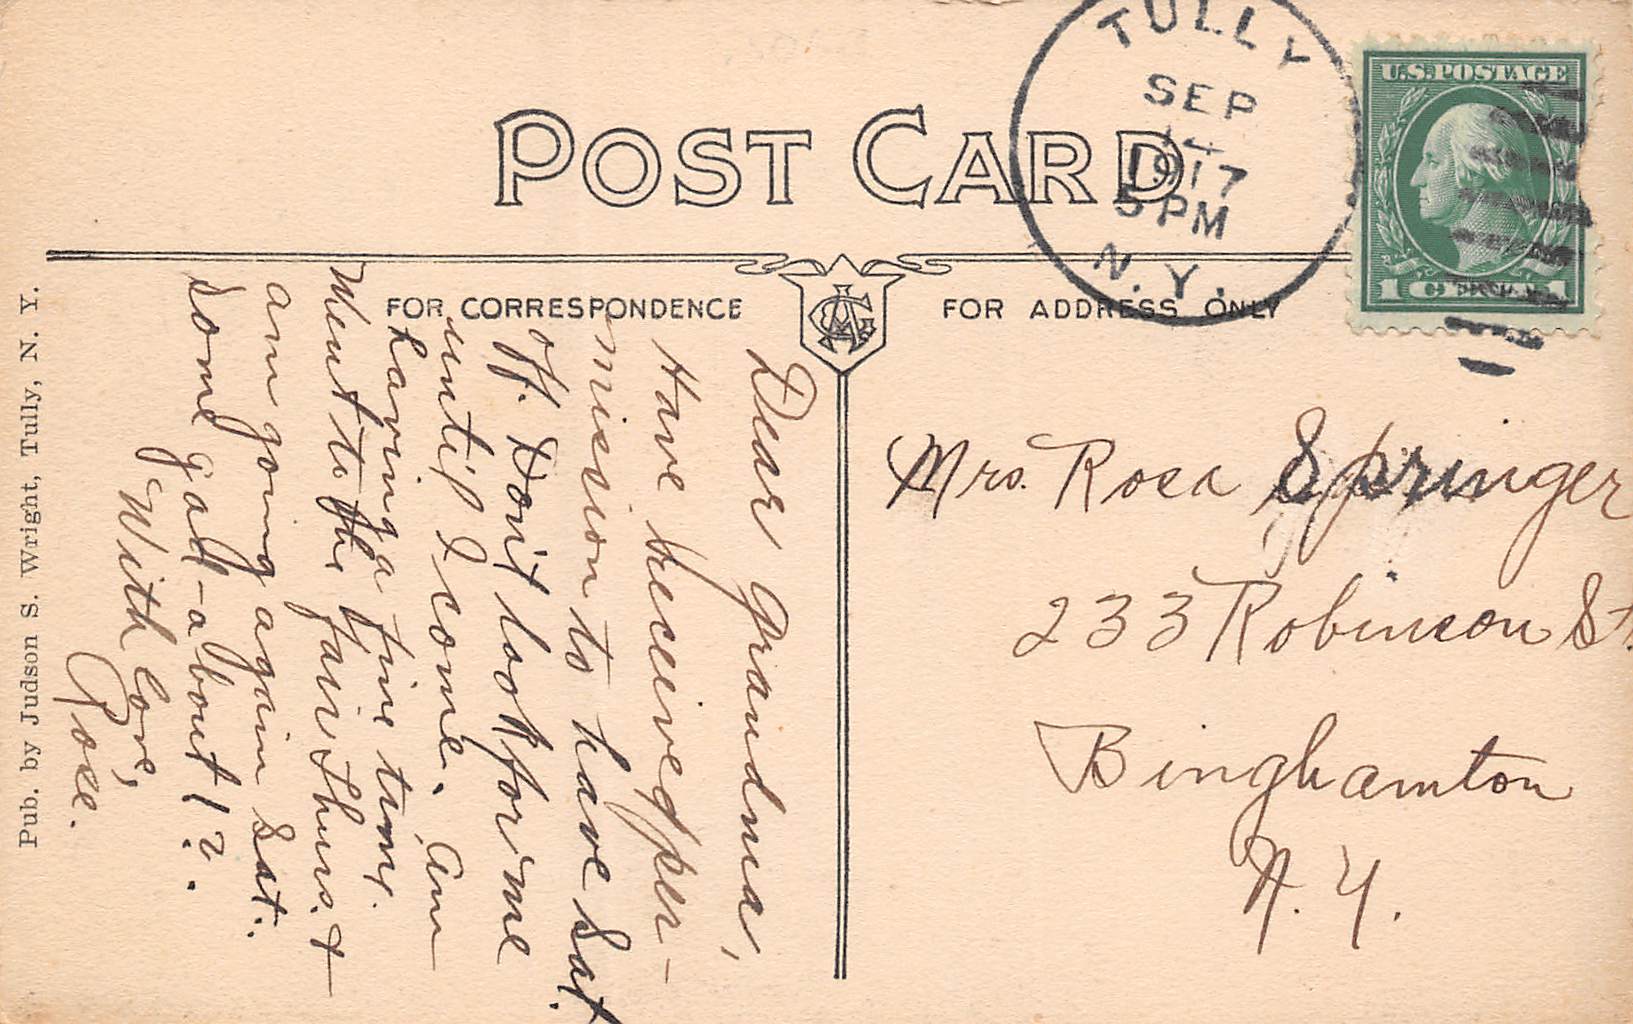 POST CARD
TULLY
SEP
14
1917
5 PM
N. Y.
U.S. POSTAGE
1 CENT 1
FOR CORRESPONDENCE
FOR ADDRESS ONLY
Dear Grandma,
Have received per-
mission to have Sat.
off. Don't look for me
until I come. Am
having a fine time.
Went to the fair Thurs. &
am going again Sat.
Some gad-about!?.
With love,
Rose.
Mrs. Rosa Springer
233 Robinson St.
Binghamton
N. Y.
Pub. by Judson S. Wright, Tully, N. Y.